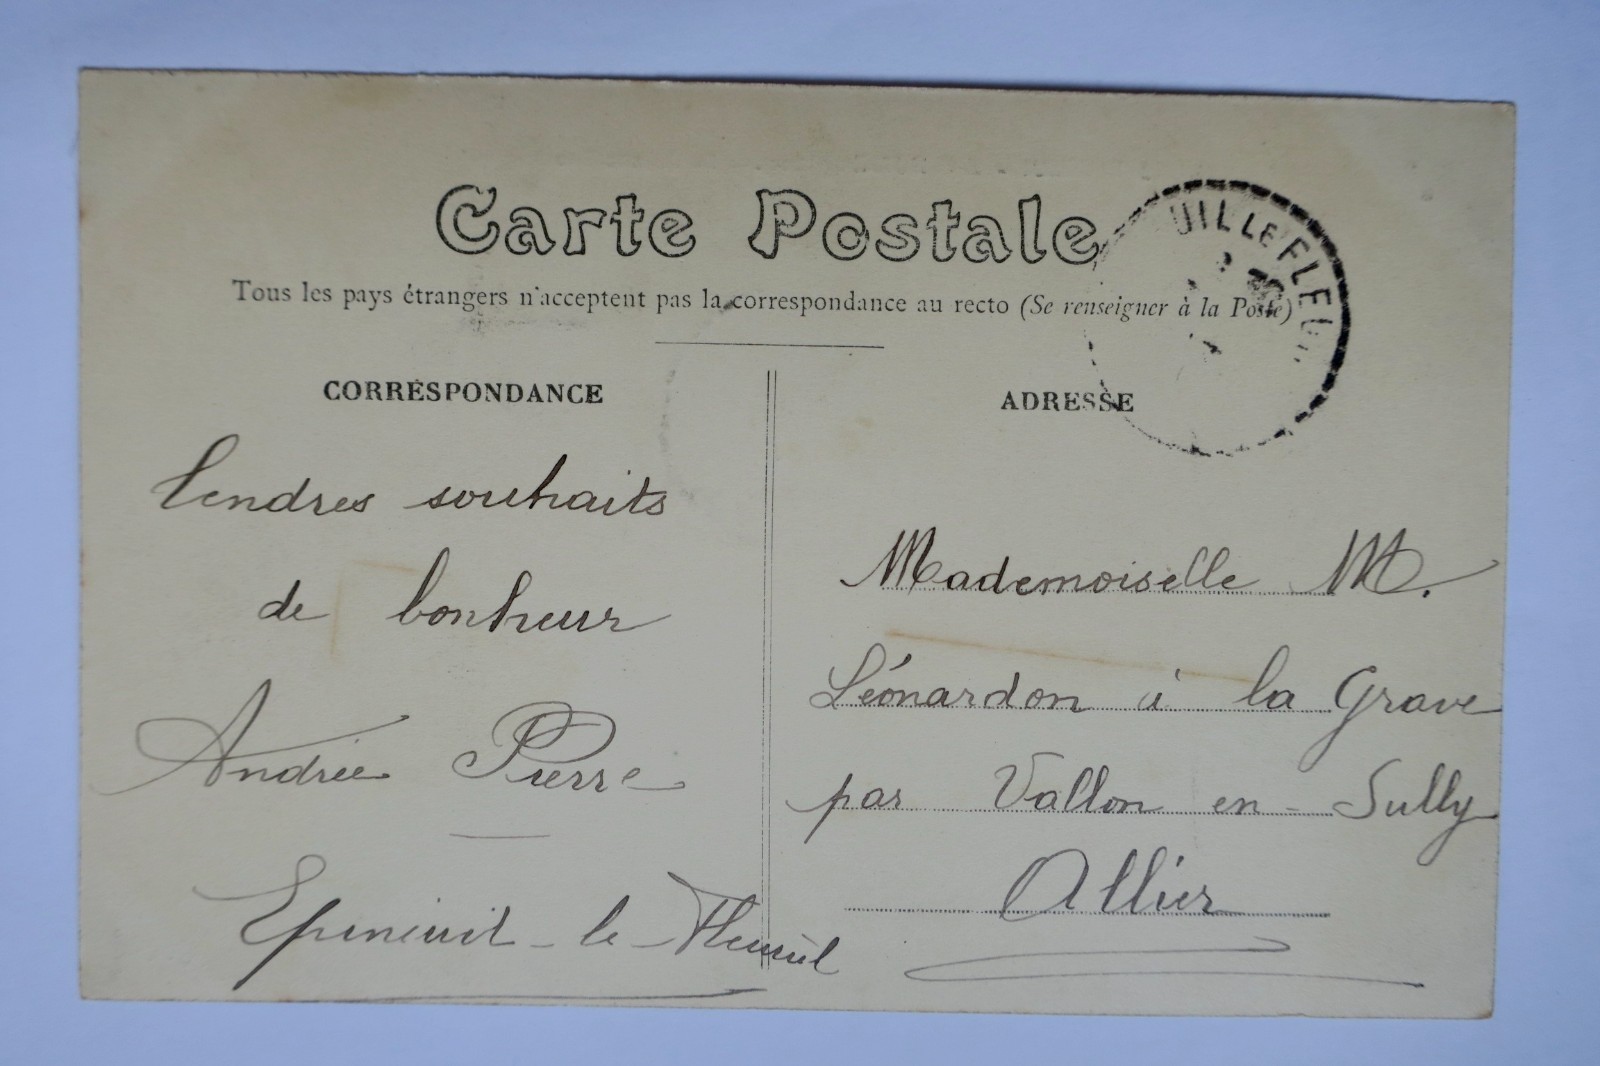 Carte Postale
Tous les pays étrangers n'acceptent pas la correspondance au recto (Se renseigner à la Poste)
UILLEFLEU
CORRESPONDANCE
Tendres souhaits
de bonheur
Andrée Pierre
Epineuil-le-Fleuriel
ADRESSE
Mademoiselle M.
Léonardon à la Grave
par Vallon en-Sully
Allier